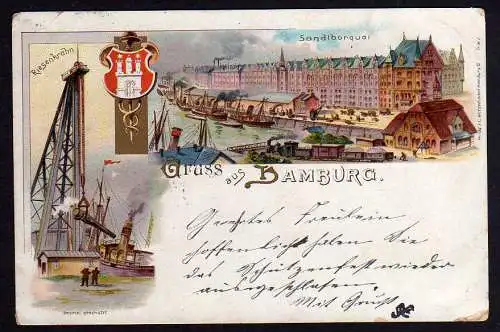 Riesenkrahn
Sandthorquai
Gruss aus Hamburg.
Geehrtes Fräulein
hoffentlich haben Sie
das Schützenfest wieder
ausgeschlafen.
Mit Gruß